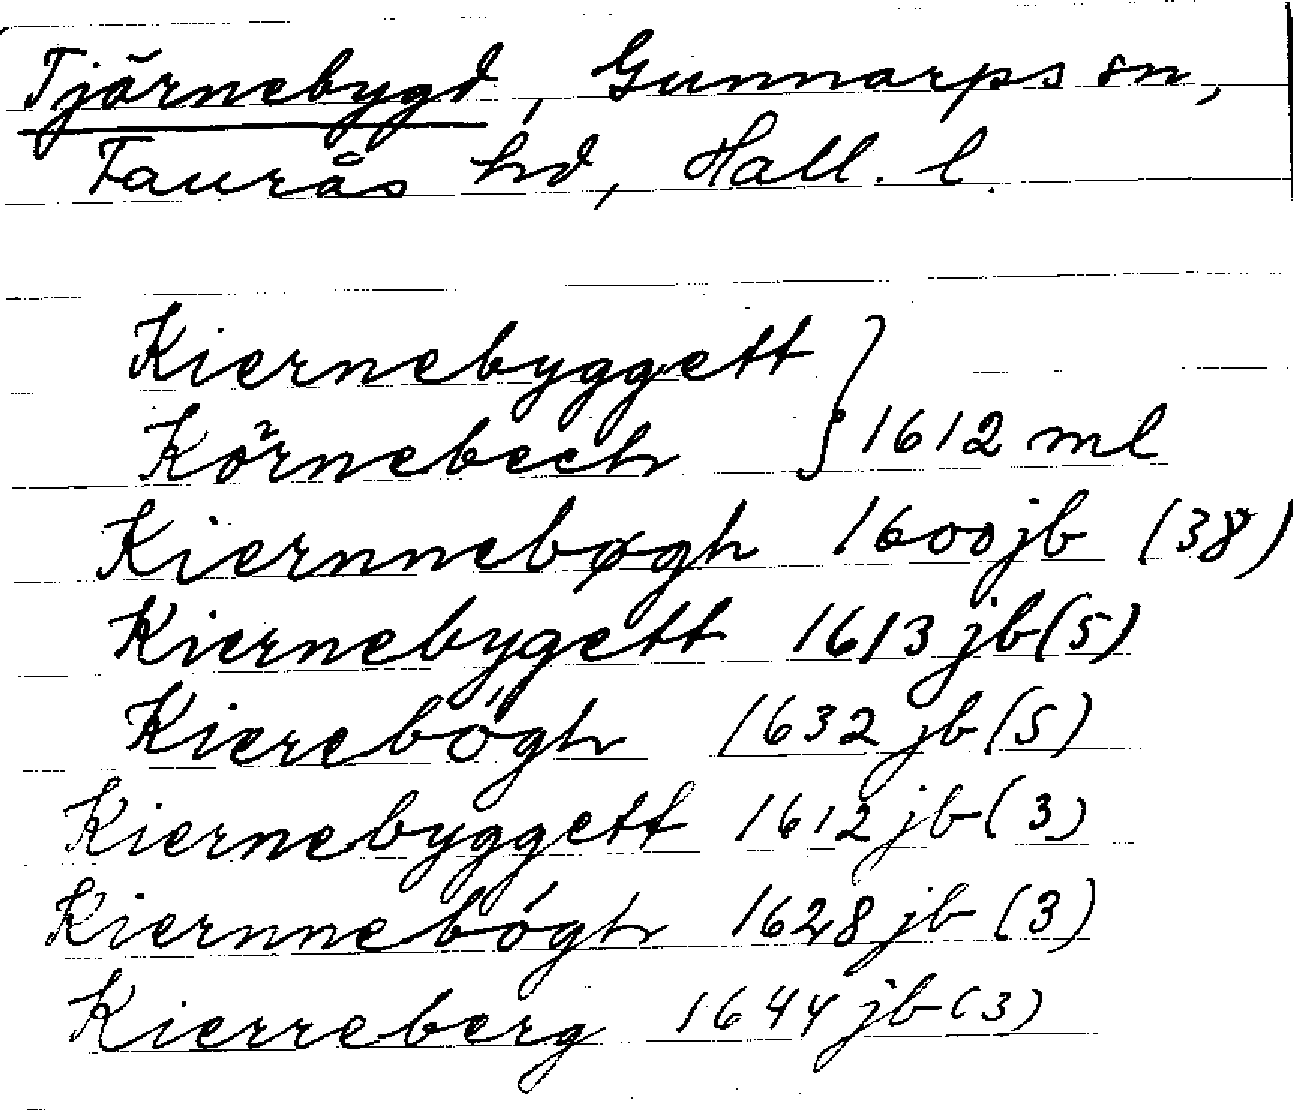 Tjärnebygd, Gunnarps sn,
Faurås hd, Hall. l.
Kiernebyggett
Körnebech } 1612 ml
Kiernnebøgh 1600 jb (38)
Kiernebygett 1613 jb (5)
Kierebőgh 1632 jb (5)
Kiernebyggett 1612 jb (3)
Kiernnebógh 1628 jb (3)
Kierreberg 1644 jb (3)